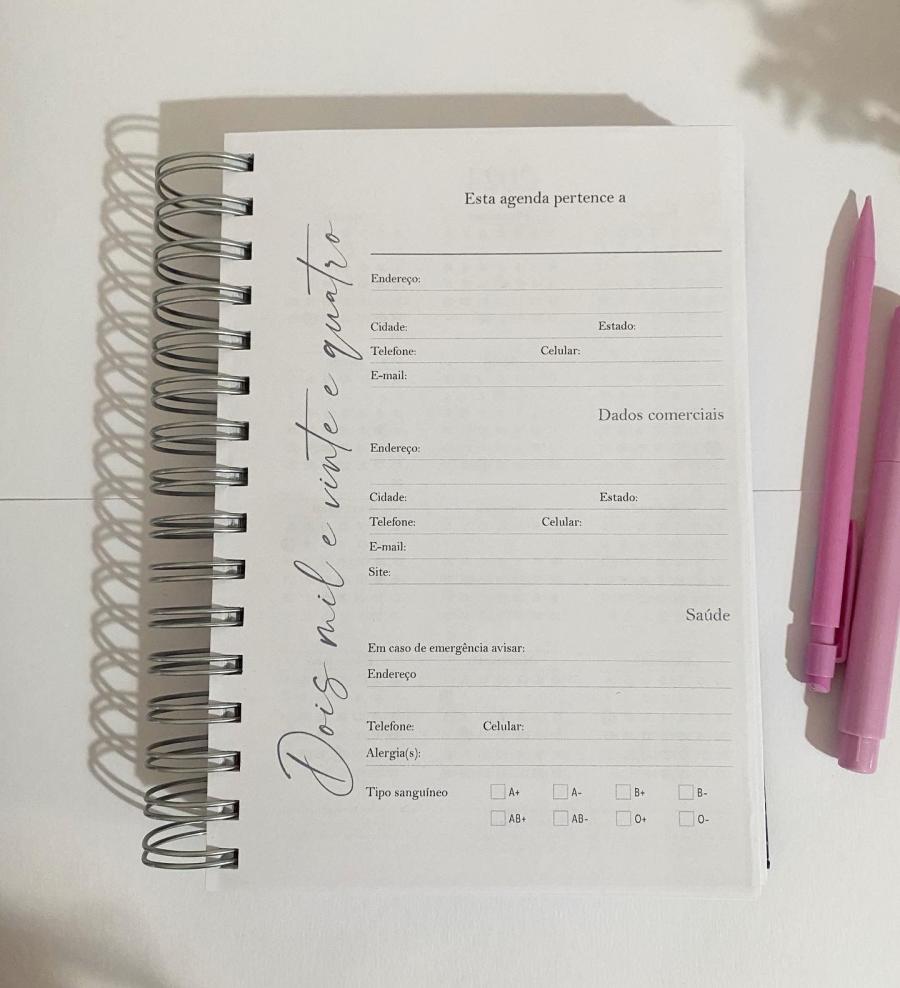 Esta agenda pertence a
Dois mil e vinte e quatro
Endereço:
Cidade: Estado:
Telefone: Celular:
E-mail:
Dados comerciais
Endereço:
Cidade: Estado:
Telefone: Celular:
E-mail:
Site:
Saúde
Em caso de emergência avisar:
Endereço
Telefone: Celular:
Alergia(s):
Tipo sanguíneo A+ A- B+ B-
AB+ AB- O+ O-